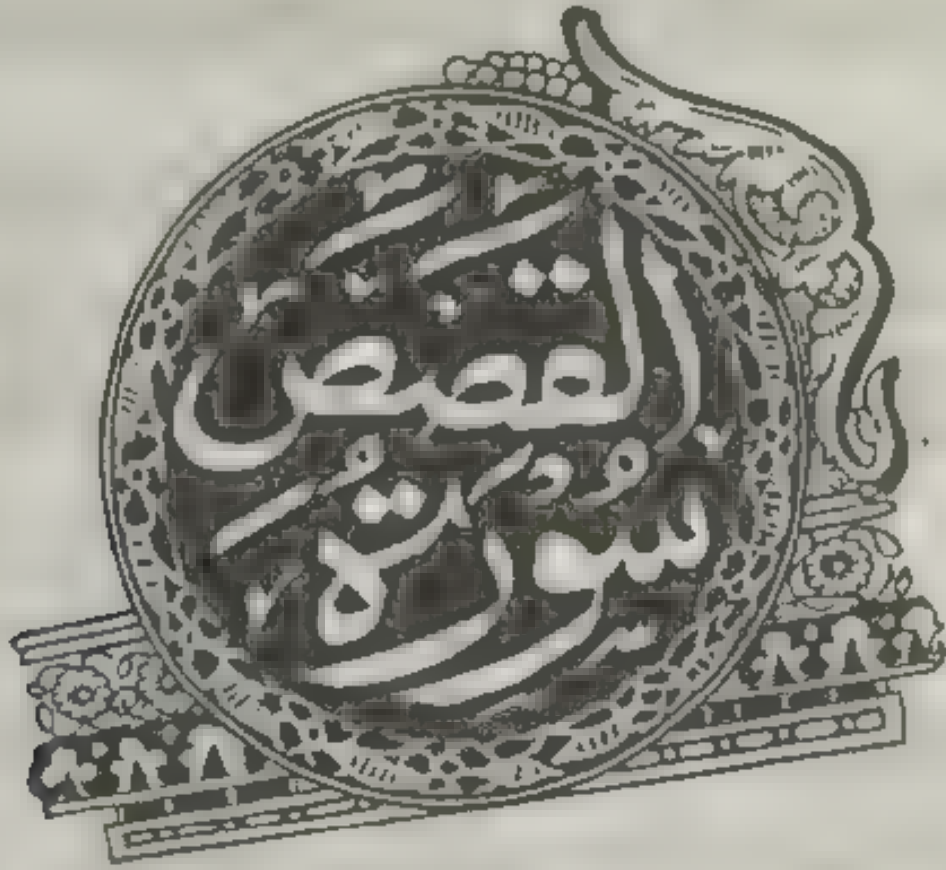 سُورَةُ
القَصَصِ